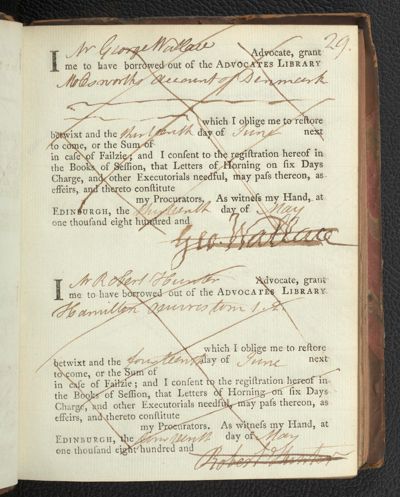 29.
I Mr George Wallace Advocate, grant
me to have borrowed out of the ADVOCATES LIBRARY
Molesworths account of Denmark
which I oblige me to reſtore
betwixt and the thirteenth day of June next
to come, or the Sum of
in caſe of Failzie; and I conſent to the regiſtration hereof in
the Books of Seſſion, that Letters of Horning on ſix Days
Charge, and other Executorials needful, may paſs thereon, as
effeirs, and thereto conſtitute
my Procurators. As witneſs my Hand, at
EDINBURGH, the thirteenth day of May
one thouſand eight hundred and
Geo. Wallace
I Mr Robert Hunter Advocate, grant
me to have borrowed out of the ADVOCATES LIBRARY
Hamilton
which I oblige me to reſtore
betwixt and the fourteenth day of June next
to come, or the Sum of
in caſe of Failzie; and I conſent to the regiſtration hereof in
the Books of Seſſion, that Letters of Horning on ſix Days
Charge, and other Executorials needful, may paſs thereon, as
effeirs, and thereto conſtitute
my Procurators. As witneſs my Hand, at
EDINBURGH, the fourteenth day of May
one thouſand eight hundred and
Robert Hunter